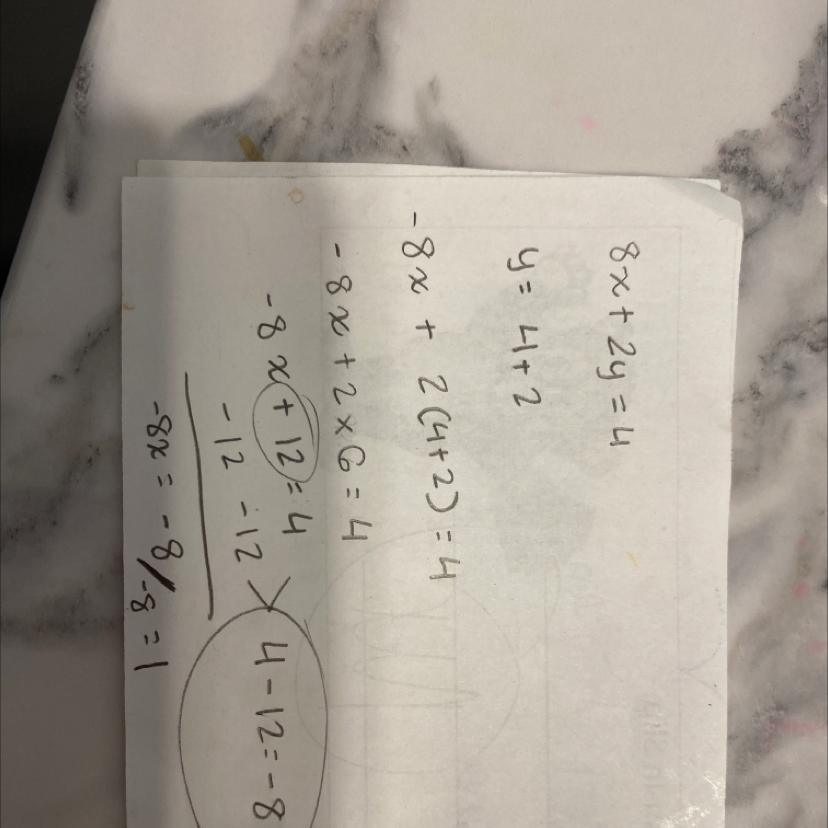 8x + 2y = 4
y = 4+2
-8x + 2(4+2) = 4
-8x + 2×6 = 4
-8x + 12 = 4
-12 -12
4-12=-8
-8x = -8/-8 = 1